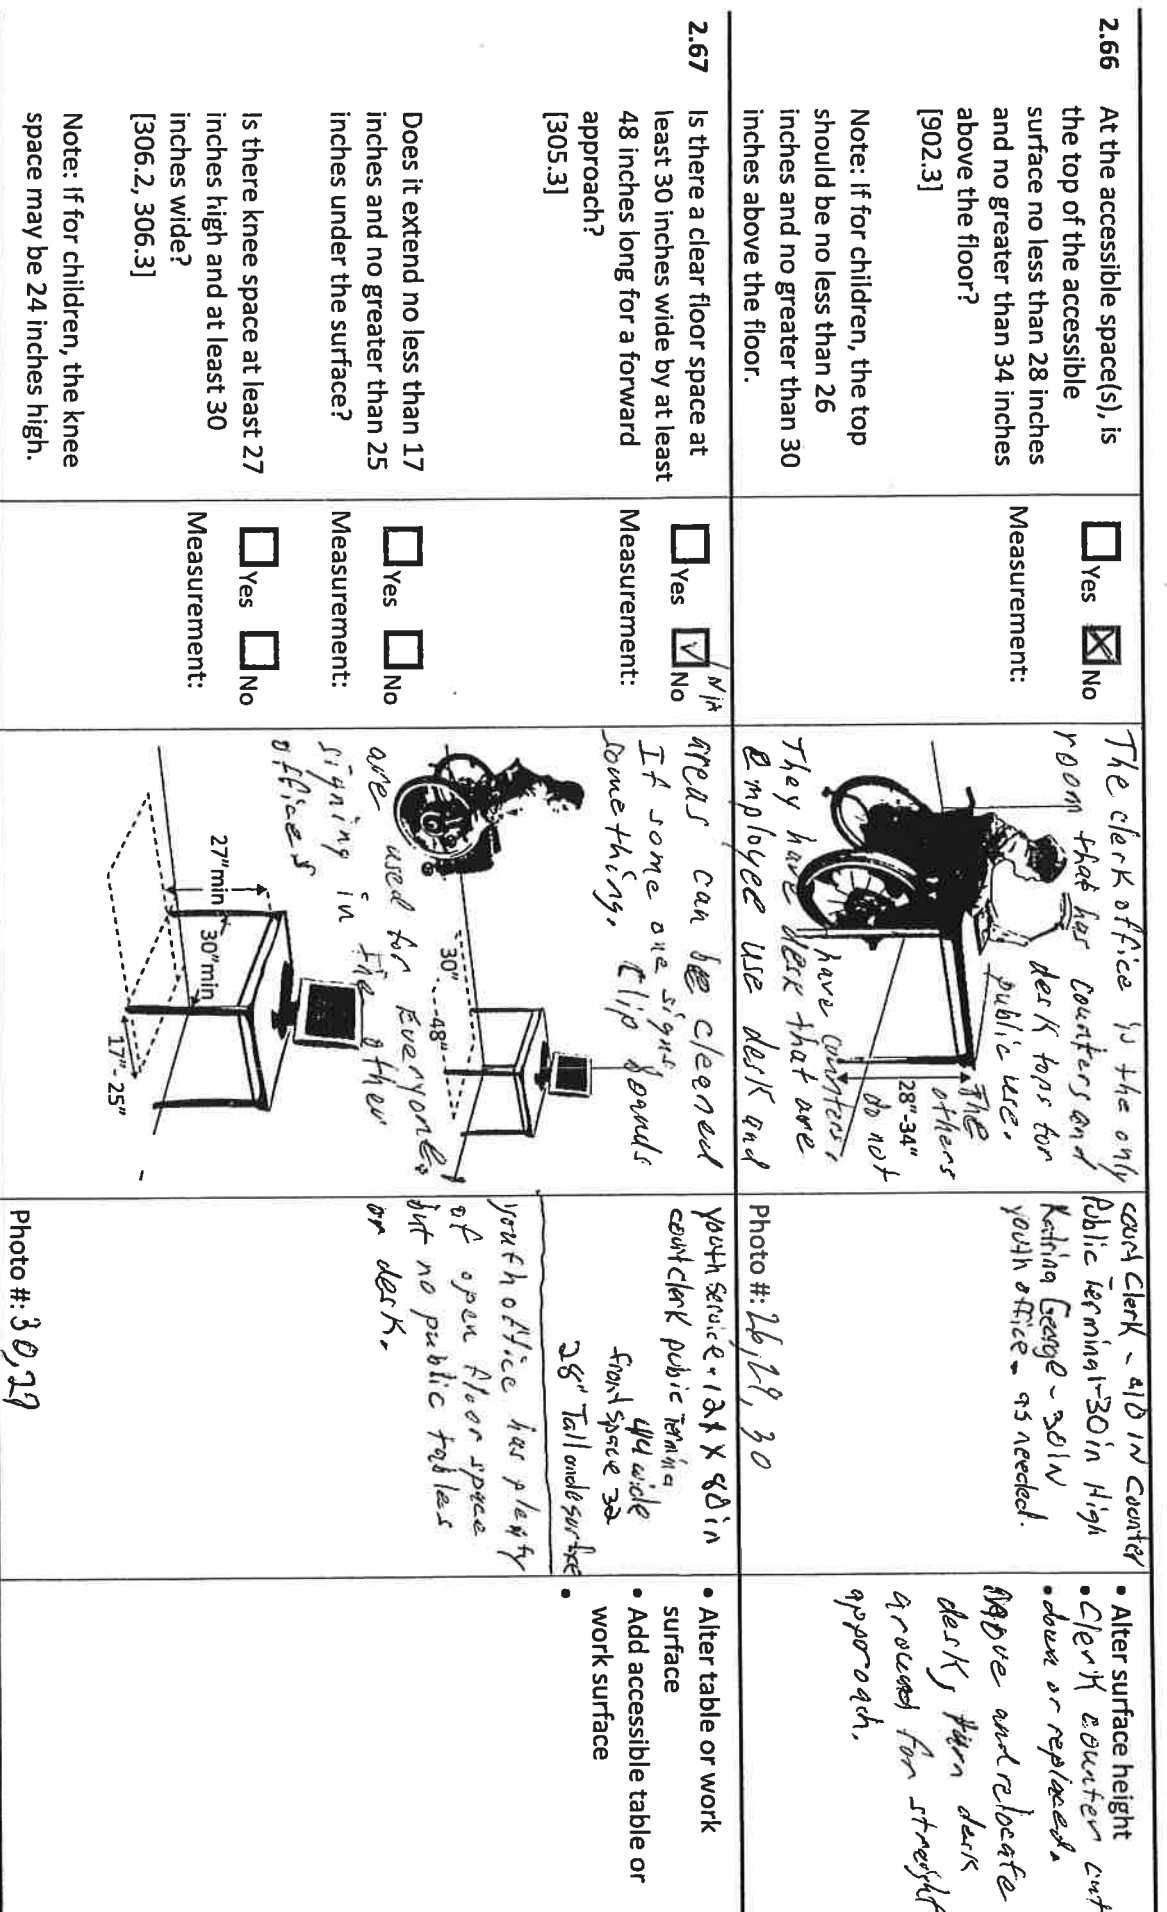 2.66 At the accessible space(s), is
the top of the accessible
surface no less than 28 inches
and no greater than 34 inches
above the floor?
[902.3]
Note: If for children, the top
should be no less than 26
inches and no greater than 30
inches above the floor.
Yes No
Measurement:
The clerk office is the only
room that has counters and
desk tops for
public use.
The
others
do not
have counters,
They have desk that are
employee use desk and
28"-34"
court Clerk - 40 IN Counter
Public Terminal-30in High
Katrina George - 30IN
youth office - as needed.
Photo #: 26, 29, 30
• Alter surface height
• Clerk counter cut
• down or replaced.
Move and relocate
desk, turn desk
around for straight
approach.
2.67 Is there a clear floor space at
least 30 inches wide by at least
48 inches long for a forward
approach?
[305.3]
Does it extend no less than 17
inches and no greater than 25
inches under the surface?
Is there knee space at least 27
inches high and at least 30
inches wide?
[306.2, 306.3]
Note: If for children, the knee
space may be 24 inches high.
N/A
Yes No
Measurement:
Yes No
Measurement:
Yes No
Measurement:
areas can be cleened
If some one signs
something. Clip boands
are used for Everyone.
signing in the other
offices
30"
48"
27"min
30"min
17"-25"
youth service - 121 X 80 in
court clerk pubic Termina
44 wide
front space 32
28" Tall unde surface
youth office has plenty
of open floor space
but no public tables
or desk.
Photo #: 30, 29
• Alter table or work
surface
• Add accessible table or
work surface
•